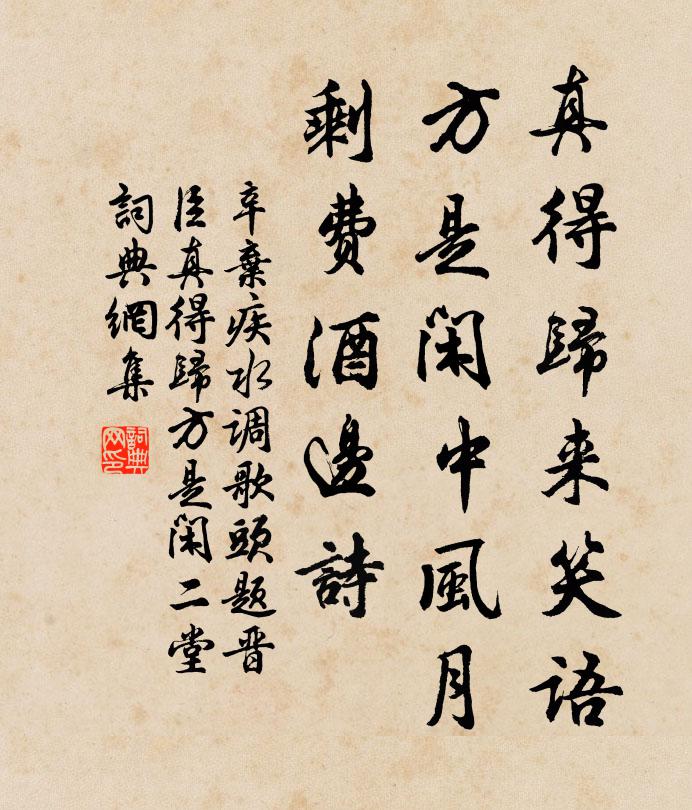 真得歸来笑語
方是閑中風月
剩費酒邊詩
辛棄疾水调歌頭题晋
臣真得歸方是閑二堂
詞典網集
詞典
网印